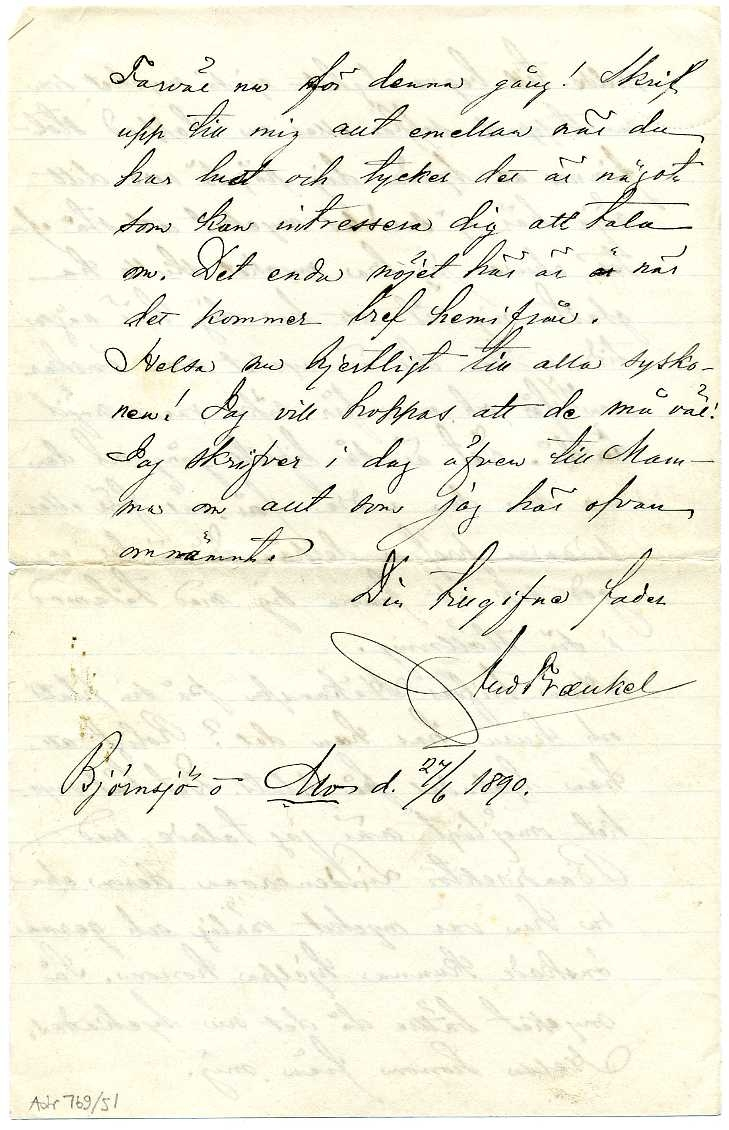 Farväl nu för denna gång! Skrif
upp till mig allt emellan när du
har lust och tycker det är något
som kan intressera dig att tala
om. Det enda nöjet här är är när
det kommer bref hemifrån.
Helsa nu hjertligt till alla sysko-
nen! Jag vill hoppas att de må väl!
Jag skrifver i dag äfven till Mam-
ma om allt som jag här ofvan
omnämnt.
Din tillgifne fader
And Frænkel
Björnsjö - Mo d. 27/6 1890.
Adr 769/51